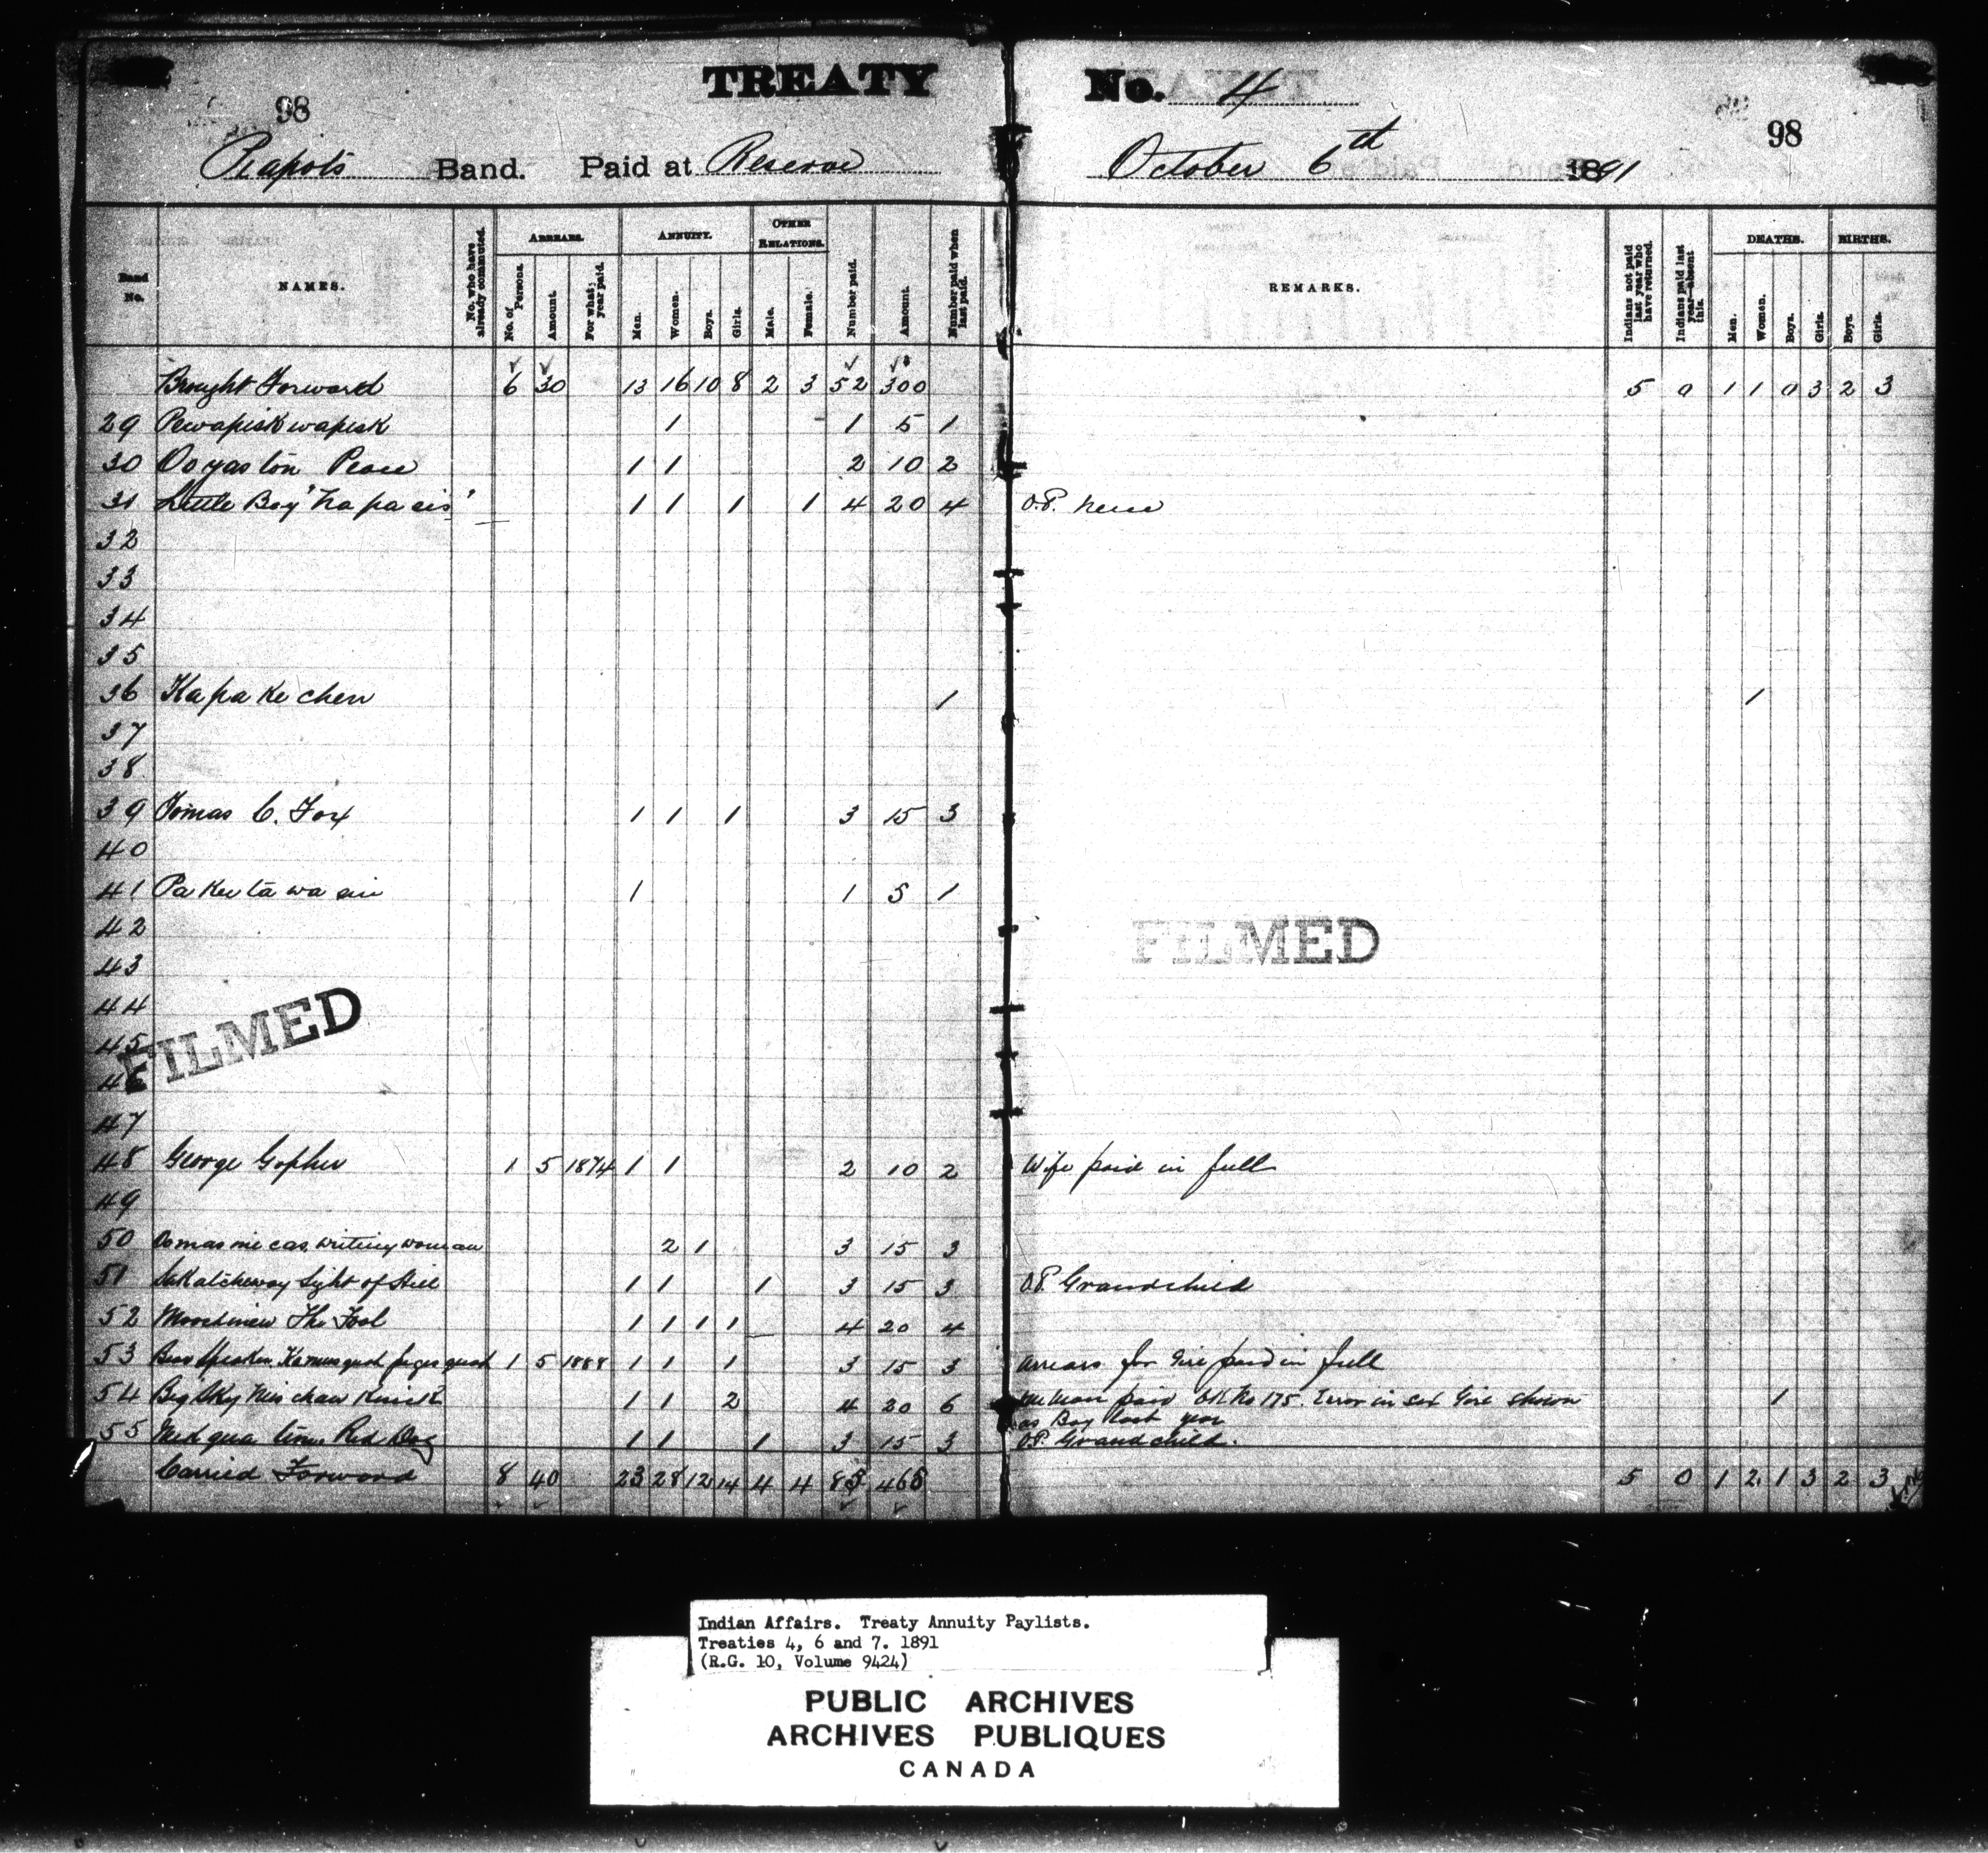 TREATY No. 4
98 98
Piapots Band. Paid at Reserve October 6th 1891
Band No. NAMES. No. who have already commuted. ARREARS. No. of Persons. Amount. For what year paid. ANNUITY. Men. Women. Boys. Girls. OTHER RELATIONS. Male. Female. Number paid. Amount. Number paid when last paid. REMARKS. Indians not paid last year who have returned. Indians paid last year—absent this. DEATHS. Men. Women. Boys. Girls. BIRTHS. Boys. Girls.
Brought Forward 6 30 13 16 10 8 2 3 52 300 5 0 1 1 0 3 2 3
29 Pewapiskwapisk 1 1 5 1
30 Ooyaston Peace 1 1 2 10 2
31 Little Boy "Napasis" 1 1 1 1 4 20 4 O.P. Niece
32
33
34
35
36 Kapakechen 1 1
37
38
39 Tomas C. Fox 1 1 1 3 15 3
40
41 Pa kee ta wa sin 1 1 5 1
42
43
44
45
46
47
48 George Gopher 1 5 1874 1 1 2 10 2 Wife paid in full
49
50 writing woman 2 1 3 15 3
51 Sakatcheway Sight of Hill 1 1 1 3 15 3 O.P. Grandchild
52 The Fool 1 1 1 1 4 20 4
53 Bear Speaker 1 5 1888 1 1 1 3 15 3 Arrears for Girl paid in full
54 Big Sky 1 1 2 4 20 6 paid No 175. Error in sex Girl shown 1
as Boy last year
55 Red Dog 1 1 1 3 15 3 O.P. Grandchild.
Carried Forward 8 40 23 28 12 14 4 4 85 465 5 0 1 2 1 3 2 3
FILMED
FILMED
Indian Affairs. Treaty Annuity Paylists.
Treaties 4, 6 and 7. 1891
(R.G. 10, Volume 9424)
PUBLIC ARCHIVES
ARCHIVES PUBLIQUES
CANADA